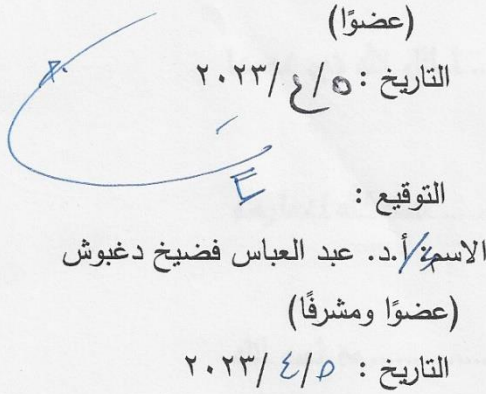 (عضوًا)
التاريخ : ٥/٤/٢٠٢٣
التوقيع :
الاسم: أ.د. عبد العباس فضيخ دغبوش
(عضوًا ومشرفًا)
التاريخ : ٥/٤/٢٠٢٣